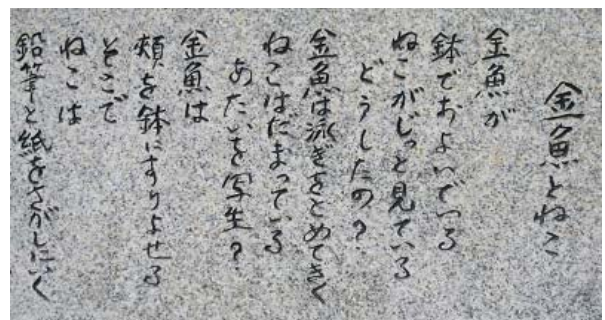 金魚とねこ
金魚が
鉢でおよいでいる
ねこがじっと見ている
どうしたの?
金魚は泳ぎをとめてきく
ねこはだまっている
あたいを写生?
金魚は
頬を鉢にすりよせる
そこで
ねこは
鉛筆と紙をさがしにいく